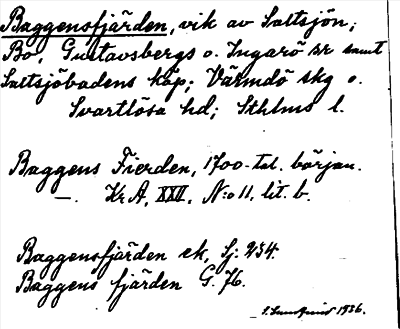 Baggensfjärden, vik av Saltsjön;
Bo, Gustavsbergs o. Ingarö sr samt
Saltsjöbadens köp; Värmdö skg o.
Svartlösa hd; Sthlms l.
Baggens Fierden, 1700-tal. början.
—. Kr A, XXII, N:o 11, lit. b.
Baggensfjärden ek, Sj. 234.
Baggens fjärden G. 76.
1936.